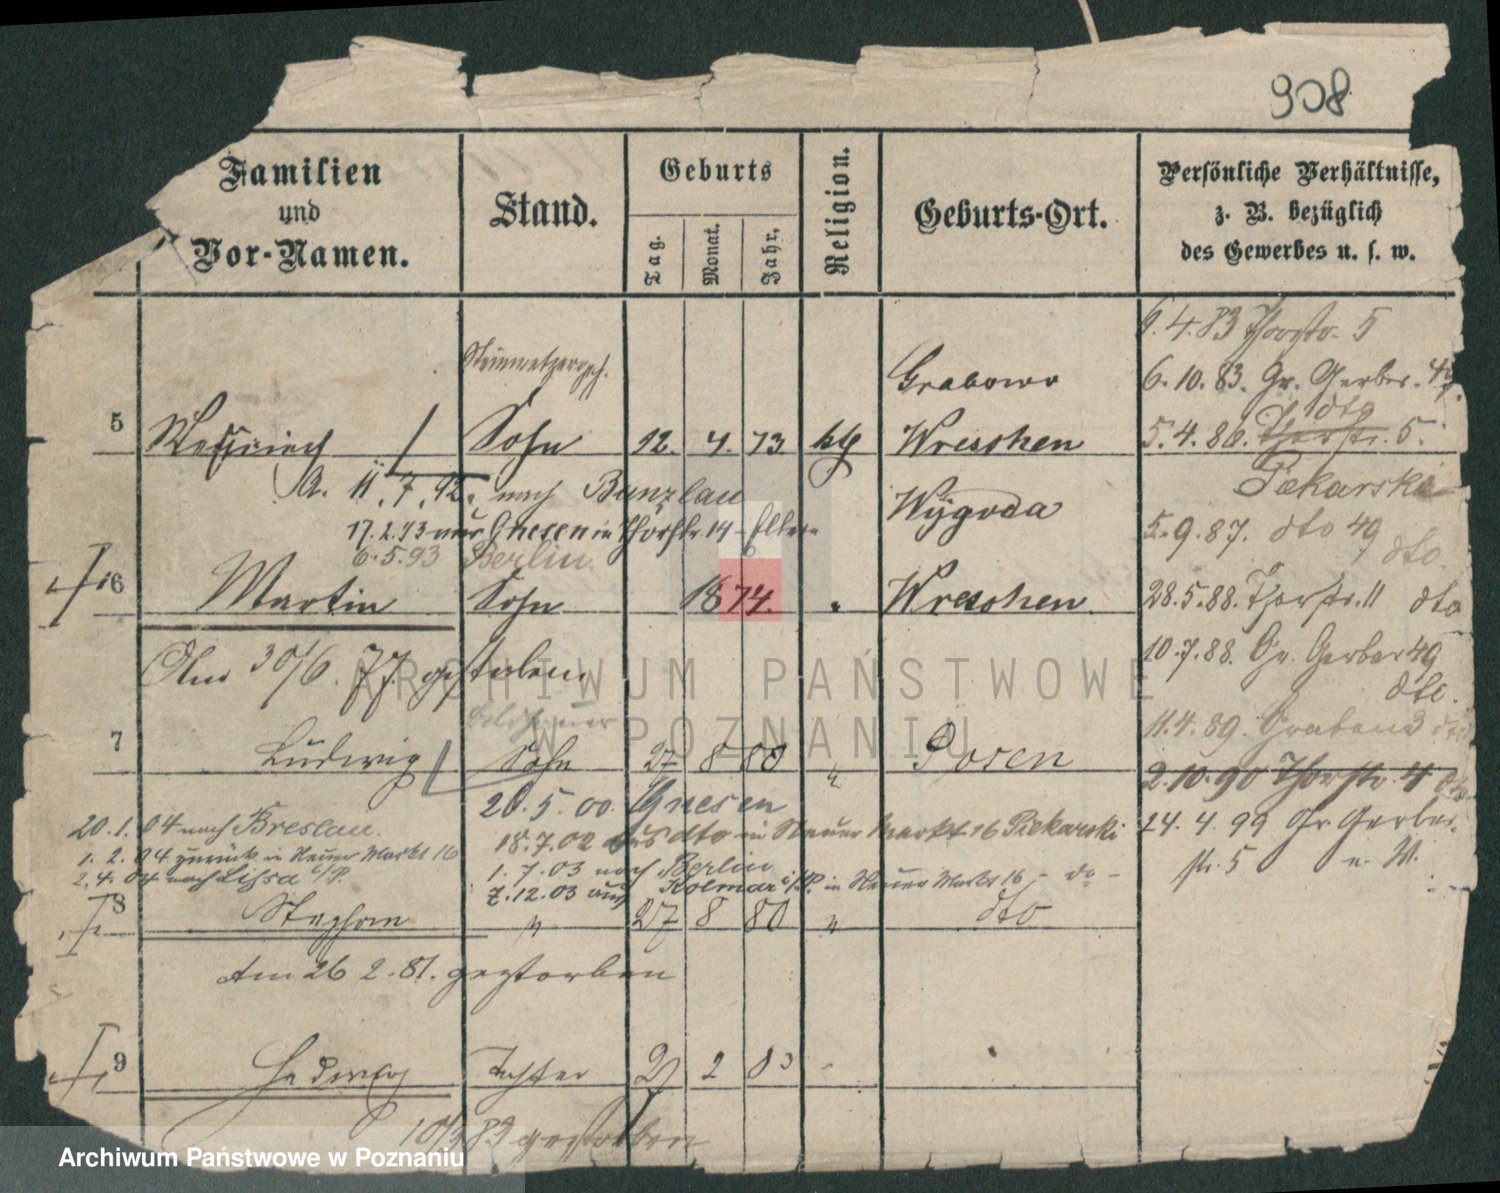 908
Familien
und
Vor-Namen.
Stand.
Geburts
Tag.
Monat.
Jahr.
Religion.
Geburts-Ort.
Persönliche Verhältnisse,
z. B. bezüglich
des Gewerbes u. s. w.
6.4.83 Thorstr. 5
Steinmetzergeh.
Grabowo
6.10.83. Gr. Gerber. 49.
dto
5 Sohn 12. 4. 73 kth Wreschen
5.4.86. Thorstr. 5.
Piekarski
A. 11.7.92. nach Bunzlau
Wygoda
17.2.93 aus Gnesen in Thorstr. 14 - Eltern
5.9.87. dto 49
dto
6.5.93 Berlin.
6 Martin Sohn 1874. " Wreschen.
28.5.88. Thorstr. 11 dto
10.7.88. Gr. Gerber 49
dto.
Am 30/6. 77 gestorben.
11.4.89. Graben 3 dto
7 Ludwig Sohn 27 8 80 " Posen
2.10.90 Thorstr. 4 dto
20.5.00. Gnesen
20.1.04 nach Breslau.
18.7.02 aus dto in Neuer Markt 16 Piekarski
24.4.99 Gr. Gerber-
str. 5 u. W.
1.2.04 zurück in Neuer Markt 16
1.7.03 nach Berlin
2.4.04 nach Lissa i/P.
7.12.03 aus Kolmar i/P. in Neuer Markt 16 - do -
8 Stephan " 27 8 80 " dto
Am 26 2. 81. gestorben
9 Hedwig Tochter 27 2 83 -
10/3 83 gestorben
ARCHIWUM PAŃSTWOWE
W POZNANIU
Archiwum Państwowe w Poznaniu